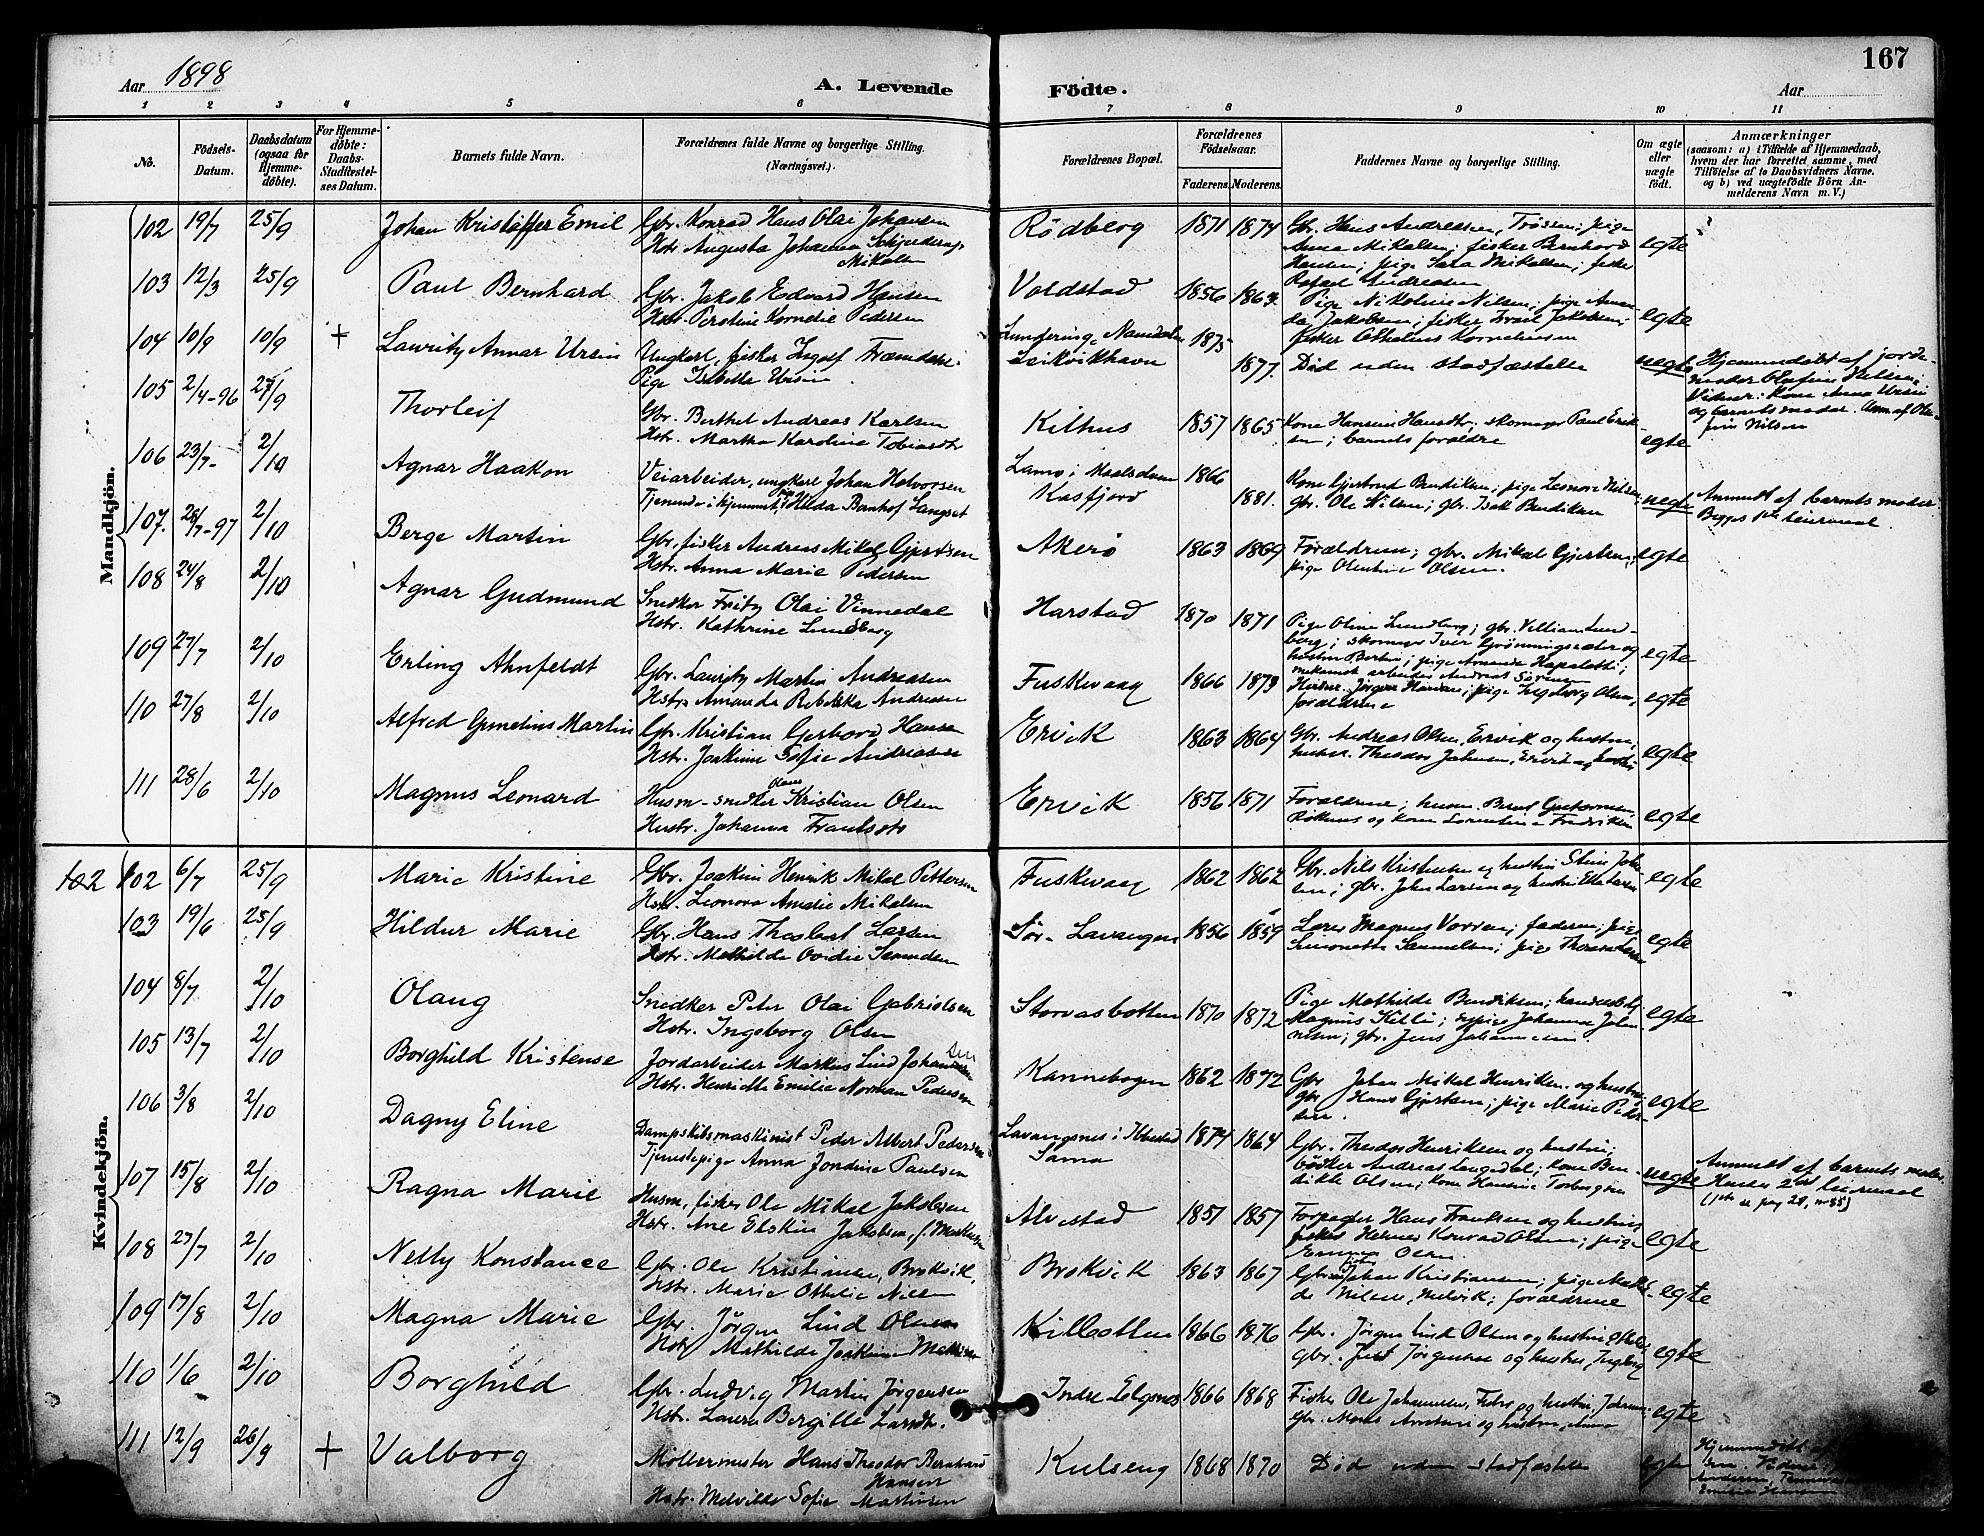 167
Aar 1898
A. Levende Födte.
Aar
1 2 3 4 5 6 7 8 9 10 11
No.
Födsels-Datum.
Daabsdatum (ogsaa for Hjemme-døbte).
For Hjemme-døbte: Daabs-Stadfæstel-ses Datum.
Barnets fulde Navn.
Forældrenes fulde Navne og borgerlige Stilling.
(Næringsvei.)
Forældrenes Bopæl.
Forældrenes Fødselsaar.
Faderens. Moderens.
Faddernes Navne og borgerlige Stilling.
Om ægte eller uægte født.
Anmærkninger
(saasom: a) i Tilfælde af Hjemmedaab,
hvem der har forrettet samme, med
Tilføielse af to Daabsvidners Navne.
og b) ved uægtefødte Börn An-
melderens Navn m. V.)
Mandkjön.
102 19/7 25/9 Johan Kristoffer Emil Gbr. Konrad Hans Olai Johansen Rødberg 1871 1874 Gbr. Hans Andreassen, Trøssen; pige egte
Hstr. Augusta Johanna Mikalsen Anna Mikalsen; fisker Bernhard
Hansen; pige Sara Mikalsen; fisker
Rafael Andreasen
103 12/3 25/9 Paul Bernhard Gbr. Jakob Edvard Hansen Voldstad 1856 1863 Pige Nikoline Nilsen; pige Aman- egte
Hstr. Perstine Kornelie Pedersen da Jakobsen; fisker Jakobsen;
fisker Othelius Korneliussen
104 10/9 10/9 + Lauritz Annar Ursin Ungkarl, fisker Ingolf Namdalen 1875
Pige Isabella Ursin 1877. Død uden stadfæstelse uegte Hjemmedøbt af jorde-
moder Olufine Nilsen;
Vidner: Kone Anna Ursin
og barnets moder. Anm. af Olu-
fine Nilsen
105 2/4-96 27/9 Thorleif Gbr. Berthel Andreas Karlsen Kilhus 1857 1865 Kone Hansine Hansdtr; skomager Paul Erik- egte
Hstr. Martha Karoline Tobiasdtr sen; barnets forældre
106 23/7 2/10 Agnar Haakon Veiarbeider, ungkarl Johan Halvorsen 1866
Tjenende i hjemmet, pige Hilda Banhof Langset Kasfjord 1881. gbr. Ole Nilsen; gbr. Isak Bendiksen uegte Anmeldt af barnets moder
Begges 1ste leiermaal.
107. 28/7-97 2/10 Berge Martin Gbr, fisker Andreas Mikal Gjertsen Akerø 1863 1869 Forældrene; gbr. Mikal Gjertsen; egte
Hstr. Anna Marie Pedersen pige Olentine Olsen.
108 24/8 2/10 Agnar Gudmund Snedker Fritz Olai Vinnedal Harstad 1870 1871 Pige Oline Lundberg; gbr. Villiam Lund- egte
Hstr. Kathrine Lundberg berg; skomager Iver Grønningsæter og
hustru Bertine; pige Amanda
mekanisk arbeider Andreas Sørensen
109 27/7 2/10 Erling Ahnfeldt Gbr. Lauritz Martin Andreasen Fuskevaag 1866 1873 Jørgen Hansen; pige Ingeborg Olsen, egte
Hstr. Amanda Rebekka Andresen forældrene
110 27/8 2/10 Alfred Martin Gbr. Kristian Gerhard Hansen Ervik 1863 1864 Gbr. Andreas Olsen, Ervik og hustru, egte
Hstr. Joakime Sofie Andreasen Theodor Johnsen, Ervik og hustru
111 28/6 2/10 Magnus Leonard Husm-snedker Olaus Kristian Olsen Ervik 1856 1871 Forældrene; husm. Bernt egte
Hustr. Johanna Frantsdtr og kone Lorentine Fredriksen
Kvindekjön.
102 102 6/7 25/9 Marie Kristine Gbr. Joakim Henrik Mikal Pettersen Fuskevaag 1862 1862 Gbr. Nils Kristensen og hustru Stine Joha- egte
Hstr. Leonora Amalie Mikalsen sen; gbr. John Larsen og hustru Larsen
103 19/6 25/9 Hildur Marie Gbr. Hans Theobart Larsen Sør-Lavangen 1856 1859 Magnus Vorren; faderen, pige egte
Hstr. Mathilde Samuelsen Simonette Samuelsen; pige Larsen
104 8/7 2/10 Olaug Snedker Peter Olai Gabrielsen Storvasbotten 1870 1872 Pige Mathilde Bendiksen; egte
Hstr. Ingeborg Olsen Magnus Killi; sypige Johanna Johan-
nesen; gbr. Jens Johannesen
105 13/7 2/10 Borghild Kristense Jordarbeider Markus Lind Johansen Kannebogen 1862 1872 Gbr Johan Mikal Henriksen og hustru; egte
Hstr. Henriette Emilie Norman Pedersen gbr Hans Gjertsen; pige Marie Peder-
sen.
106 3/8 2/10 Dagny Eline Dampskibsmaskinist Peder Albert Pedersen Lavangsnes i Ibbestad 1874 1864 Gbr. Theodor Henriksen og hustru; uegte Anmeldt af barnets moder.
Tjenestepige Anna Jondine Paulsen Sama bødker Andreas; kone Ben- Hendes 2det leiermaal
dikte Olsen; kone Hansine Torbergsen (1ste se pag 29, nr 85)
107 15/8 2/10 Ragna Marie Husm, fisker Ole Mikal Jakobsen Alvestad 1851 1857 Forpagter Hans Frantsen og hustru; egte
Hstr. Ane Jakobsen, f. Markussen fisker Konrad Olsen; pige
Emma Olsen
108 27/7 2/10 Nelly Konstance Gbr. Ole Kristiansen, Brokvik, Brokvik 1863 1867 Gbr. Johan Kristiansen; pige egte
Hstr. Marie Othilie Nilsen Nilsen, Melvik; forældrene
109 17/8 2/10 Magna Marie Gbr. Jörgen Lind Olsen Kilbotten 1866 1876 Gbr. Jörgen Lind Olsen og hustru egte
Hstr. Mathilde Joakime gbr. Just Jörgensen og hustru Ingeborg
110 1/6 2/10 Borghild Gbr. Ludvig Martin Jörgensen Indre Elgsnes 1866 1868 Fisker Ole Johannesen, og hustru, egte
Hstr. Laura Bergitte Larsdtr. gbr. og hustru, Anna
111 12/9 26/9 + Valborg Møllermester Hans Theodor Bernhard Hansen Kulseng 1868 1870 Død uden stadfæstelse egte Hjemmedøbt af
Hstr. Melvilde Sofie Martinsen Vidner:
Andersen,
Emilie Hansen